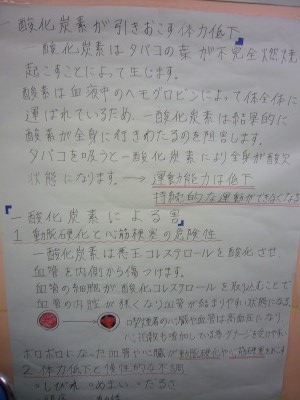 一酸化炭素が引きおこす体力低下
一酸化炭素はタバコの葉が不完全燃焼
起こすことによって生じます。
酸素は血液中のヘモグロビンによって体全体に
運ばれているため、一酸化炭素は結果的に
酸素が全身に行きわたるのを阻害します。
タバコを吸うと一酸化炭素により全身が酸欠
状態になります。→運動能力は低下
持続的な運動ができなくなる
一酸化炭素による害
1 動脈硬化と心筋梗塞の危険性
一酸化炭素は悪玉コレステロールを酸化させ
血管を内側から傷つけます。
血管の細胞が酸化コレステロールを取り込むことで
血管の内腔が狭くなり血管が詰まりやすい状態になる
喫煙者の心臓や血管は高血圧になり
心拍数も増加している為ダメージを受けやすい
ボロボロになった血管や心臓が動脈硬化や心筋梗塞を
2 体力低下と慢性的な不調
・しびれ ・めまい ・だるさ